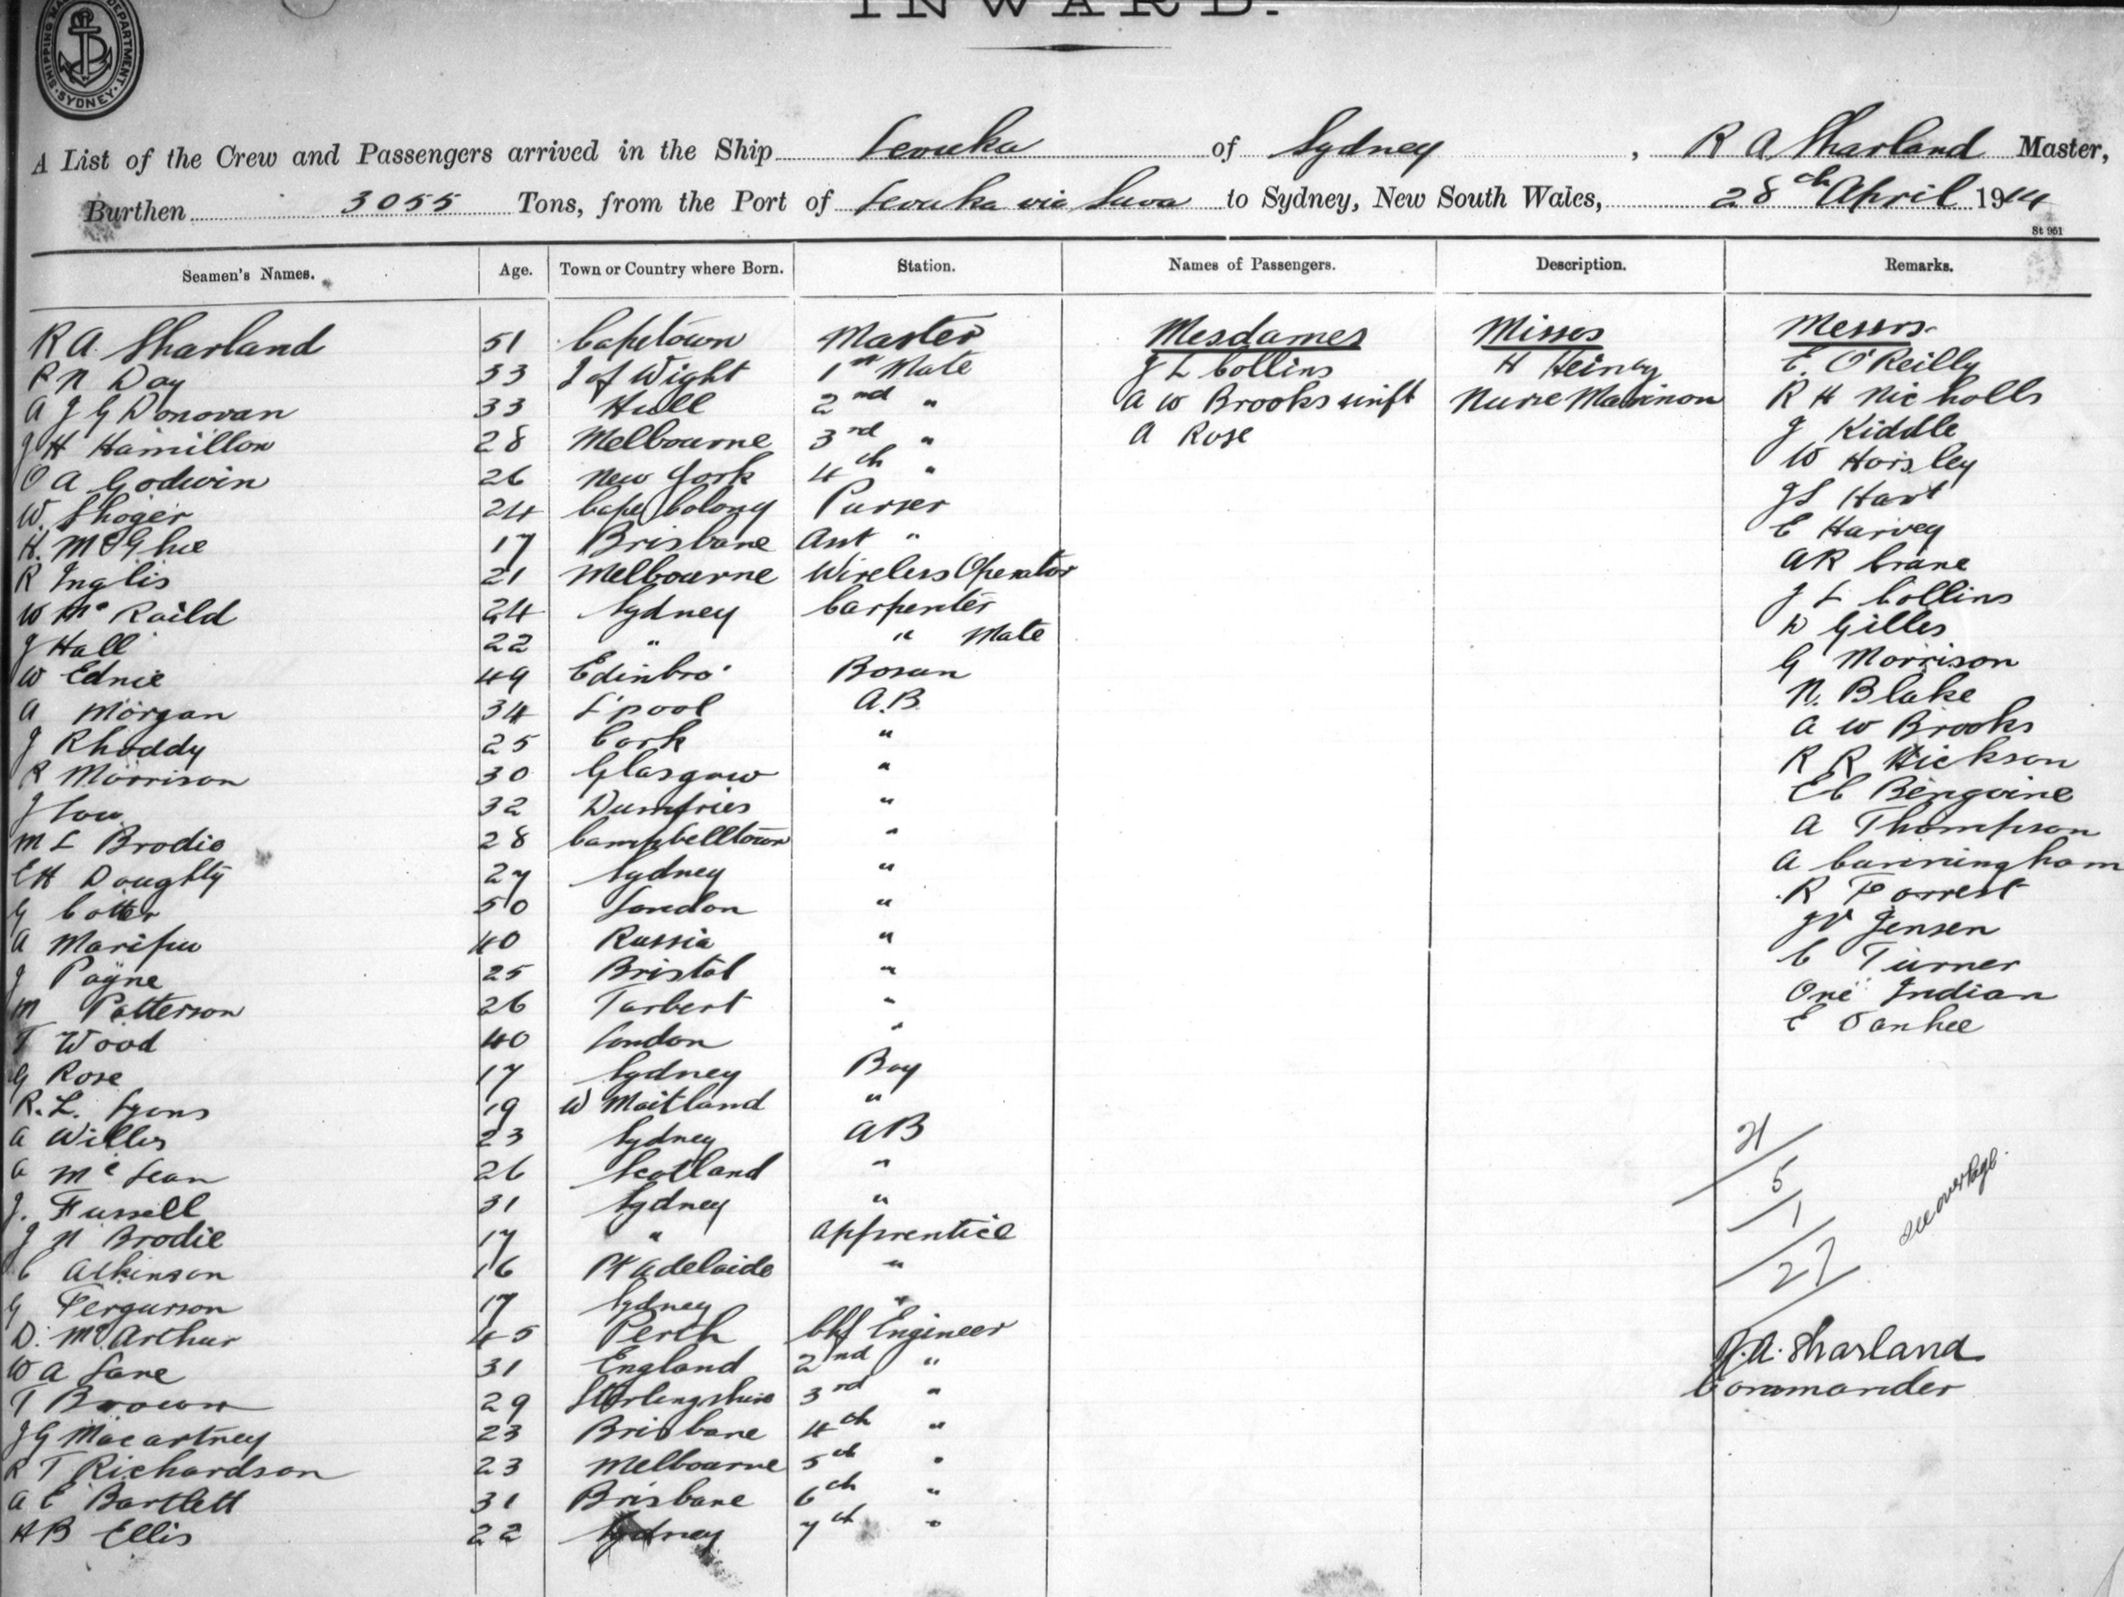 INWARD.
SHIPPING DEPARTMENT. SYDNEY.
A List of the Crew and Passengers arrived in the Ship Levuka of Sydney, R A Sharland Master,
Burthen 3055 Tons, from the Port of Levuka via Suva to Sydney, New South Wales, 28th April 1914
St 961
Seamen's Names. Age. Town or Country where Born. Station. Names of Passengers. Description. Remarks.
R A Sharland 51 Capetown Master Mesdames Misses Messrs
P N Day 33 I of Wight 1st Mate J L Collins H E O'Reilly
A J G Donovan 33 Hull 2nd " A W Brooks Nurse R H Nicholls
J H Hamilton 28 Melbourne 3rd " A Rose J Kiddle
O A Godwin 26 New York 4th " W Horsley
W. Shoger 24 Cape Colony Purser J S Hart
H. McGhie 17 Brisbane Asst " E Harvey
R Inglis 21 Melbourne Wireless Operator A R Crane
W Mc Raild 24 Sydney Carpenter J L Collins
J Hall 22 " " Mate D Gilles
W Ednie 49 Edinbro' Bosun G Morrison
A Morgan 34 L'pool A.B. N. Blake
J Rhoddy 25 Cork " A W Brooks
R Morrison 30 Glasgow " R R Hickson
J Low 32 Dumfries " E C
M L Brodie 28 Campbelltown " A Thompson
E H Doughty 27 Sydney " A Cunningham
G Cotter 50 London " R Forrest
A 40 Russia " J V Jensen
J Payne 25 Bristol " C Turner
M Patterson 26 Tarbert " One Indian
T Wood 40 London " E
G Rose 17 Sydney Boy
R. L. Lyons 19 W Maitland "
A Willis 23 Sydney AB
A McLean 26 Scotland "
J. Fussell 31 Sydney "
J N Brodie 17 " Apprentice
C Atkinson 16 Pt Adelaide "
G Ferguson 17 Sydney "
D. McArthur 45 Perth Chf Engineer
W A Lane 31 England 2nd "
T Brown 29 Stirlingshire 3rd "
J G Macartney 23 Brisbane 4th "
R T Richardson 23 Melbourne 5th "
A E Bartlett 31 Brisbane 6th "
H B Ellis 22 Sydney 7th "
21
5
1
27
see over page.
R. A. Sharland
Commander